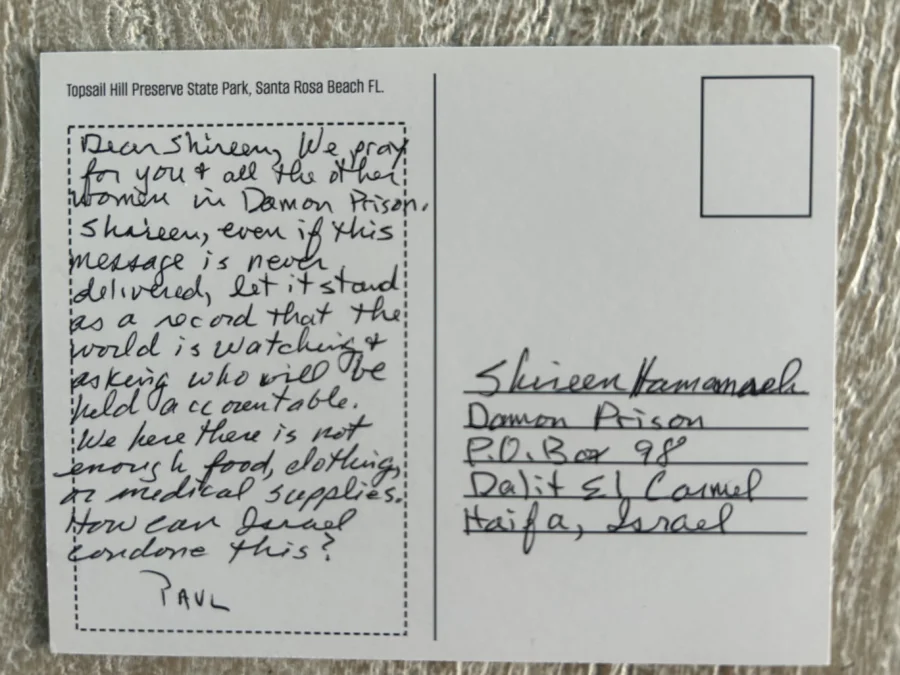 Topsail Hill Preserve State Park, Santa Rosa Beach FL.
Dear Shireen, We pray
for you & all the other
women in Damon Prison.
Shireen, even if this
message is never
delivered, let it stand
as a record that the
world is watching &
asking who will be
held accountable.
We here there is not
enough food, clothing,
or medical supplies.
How can Israel
condone this?
PAUL
Shireen Hamamreh
Damon Prison
P.O. Box 98
Dalit El Carmel
Haifa, Israel